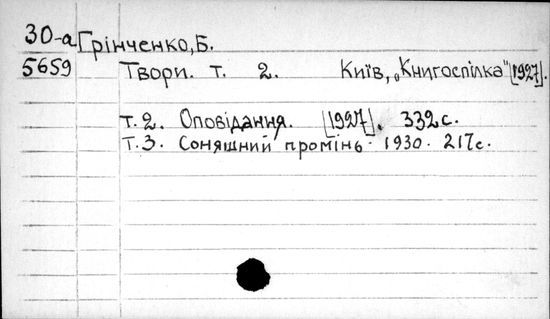 30-а Грінченко, Б.
5659 Твори. т. 2. Київ, „Книгоспілка" [1927].
т. 2. Оповідання. [1927]. 332 с.
т. 3. Соняшний промінь. 1930. 217 с.